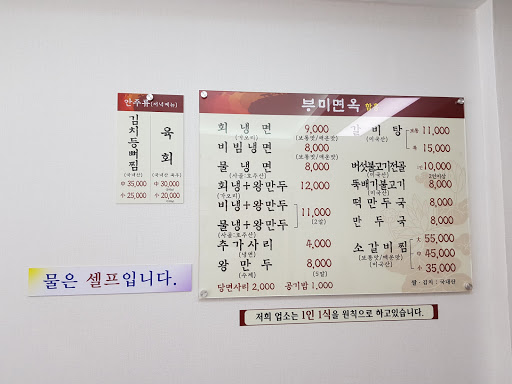 안주류(저녁메뉴)
김치등뼈찜
(국내산)
中 35,000
小 25,000
육회
(국내산 육우)
中 30,000
小 20,000
물은 셀프입니다.
부미면옥
회냉면 9,000
(가오리) (보통맛/매운맛)
비빔냉면 8,000
(보통맛/매운맛)
물냉면 8,000
(사골:호주산)
회냉+왕만두 12,000
(가오리)
비냉+왕만두
물냉+왕만두 11,000
(사골:호주산) (2알)
추가사리 4,000
(냉면)
왕만두 8,000
(수제) (5알)
당면사리 2,000 공기밥 1,000
갈비탕 보통 11,000
(미국산) 특 15,000
버섯불고기전골 10,000
(미국산) 2인이상
뚝배기불고기 8,000
(미국산)
떡만두국 8,000
만두국 8,000
소갈비찜 大 55,000
(보통맛/매운맛) 中 45,000
(미국산) 小 35,000
쌀·김치 : 국내산
저희 업소는 1인 1식을 원칙으로 하고있습니다.